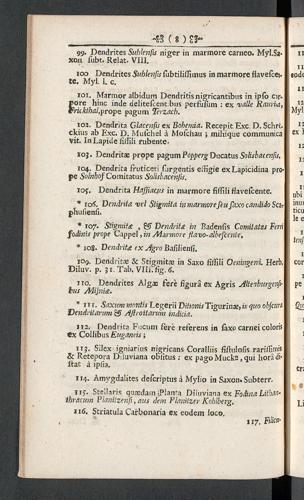 ( 8 )
99. Dendrites Suhlensis niger in marmore carneo. Myl. Sa-
xon subt. Relat. VIII.
100 Dendrites Suhlensis subtilissimus in marmore flavescen-
te. Myl. l. c.
101. Marmor albidum Dendritis nigricantibus in ipso cor-
pore hinc inde delitescentibus perfusum: ex valle Rauria,
Frickthal, prope pagum
102. Dendrita Glatensis ex Bohemia. Recepit Exc. D. Schro-
ckius ab Exc. D. Muschel à Moschau; mihique communica
vit. In Lapide fissili rubente.
103. Dendritæ prope pagum Popperg Ducatus Solisbacensis.
104. Dendrita fruticeti surgentis effigie ex Lapicidina pro-
pe Solnhof Comitatus Solisbacensis.
105. Dendrita Hassiacus in marmore fissili flavescente.
* 106. Dendrita vel Stigmita in marmore seu saxo candido Sca-
phusiensi.
* 107. Stigmitæ, & Dendritæ in Badensis Comitatus Ferri
fodinis prope Cappel, in Marmore flavo-albescente,
* 108. Dendritæ ex Agro Basiliensi.
109. Dendritæ & Stigmitæ in Saxo fissili Oeningensi. Herb.
Diluv. p. 31. Tab. VIII. fig. 6.
110. Dendrites Algæ ferè figurâ ex Agris Altenburgensi-
bus Misniæ.
* 111. Saxum montis Legerii Ditionis Tigurinæ, in quo obscura
Dendritarum & Astroitarum indicia.
112. Dendrita Fucum ferè referens in saxo carnei coloris
ex Collibus Euganeis;
113. Silex igniarius nigricans Coralliis fistulosis rarissimis
& Retepora Diluviana oblitus: ex pago Mucke, qui horâ di-
stat à ipsla.
114. Amygdalites descriptus à Mylio in Saxon-Subterr.
115. Stellaris quædam Planta Diluviana ex Fodina Lithan-
thracum Planitzensi, aus dem Planitzer Kohlberg.
116. Striatula Carbonaria ex eodem loco.
117. Filico-